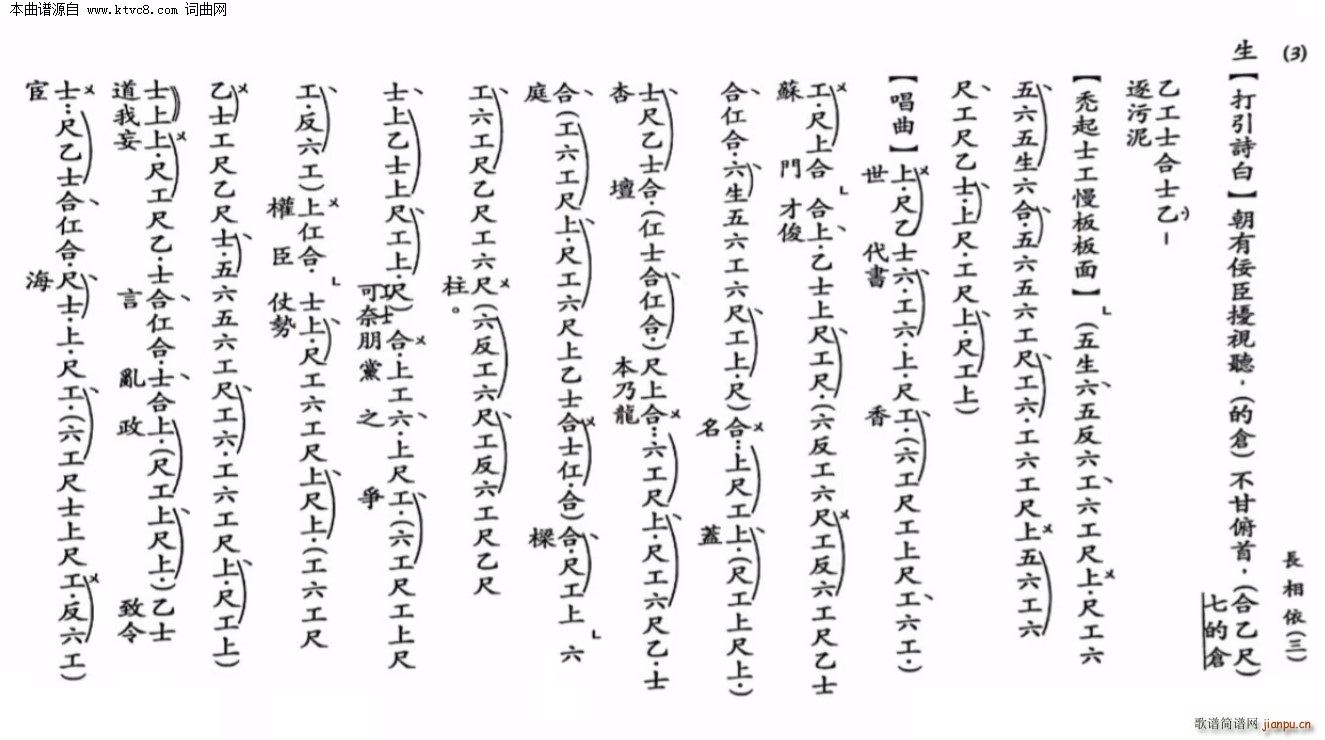 本曲谱源自 www.ktvc8.com 词曲网
(3)
長相依(三)
生【打引詩白】朝有佞臣擾視聽,(的倉)不甘俯首,(合乙尺)
七的倉
乙工士合士乙
逐污泥
【禿起士工慢板板面】(五生六五反六工六工尺上·尺工六
五六五生六合·五六五六工尺工六·工六工尺上五六工六
尺工尺乙士·上尺·工尺上·尺工上)
【唱曲】上·尺乙士六·工六·上·尺工·(六工尺工上尺工六工·)
世代書香
工·尺上合 合上·乙士上尺工尺·(六反工六尺工反六工尺乙士
蘇門才俊
合仜合·六生五六工六尺工上·尺)合…上尺工上·(尺工上尺上·)
名蓋
士尺乙士合·(仜士合仜合·)尺上合…六工尺上·尺工六尺乙·士
杏壇 本乃龍
合(工六工尺上·尺工六尺上乙士合士仜·合)合·尺工上 六
庭樑
工六工尺乙尺工六尺(六反工六尺工反六工尺乙尺
柱。
士上乙士上尺工上·尺)合·上工六·上尺工·(六工尺工上尺
可奈朋黨之爭
工·反六工)上仜合·士上·尺工六工尺上·尺上·(工六工尺
權臣仗勢
乙士工尺乙尺士·五六五六工尺工六·工六工尺上·尺工上)
士上上·尺工尺乙·士合仜合·士合上·(尺工上尺上·)乙士
道我妄言亂政 致令
士…尺乙士合仜合·尺士·上·尺工·(六工尺士上尺工·反六工)
宦海
歌谱简谱网 jianpu.cn